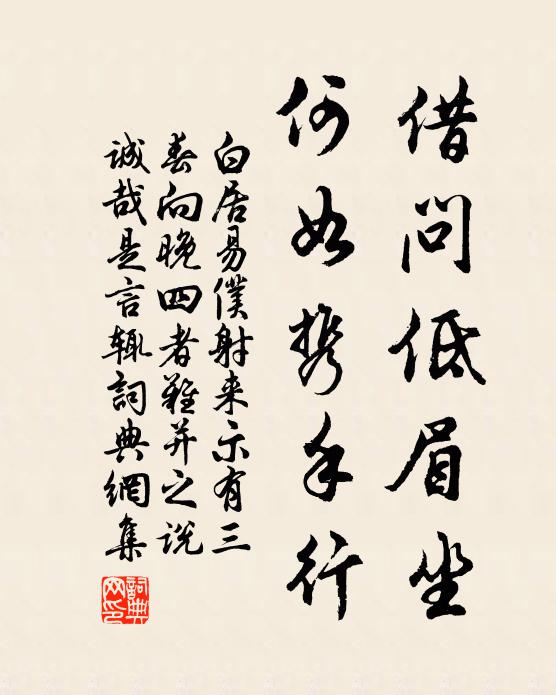 借問低眉坐
何如携手行
白居易僕射来示有三
春向晚四者難并之说
诚哉是言辄詞典網集
詞典網印